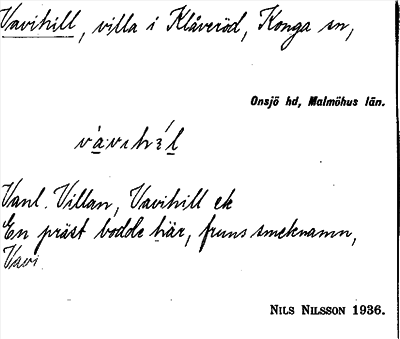 Vavihill, villa i Klåveröd, Konga sn,
Onsjö hd, Malmöhus län.
Vanl. Villan, Vavihill ek
En präst bodde här, fruns smeknamn,
Vavi.
NILS NILSSON 1936.